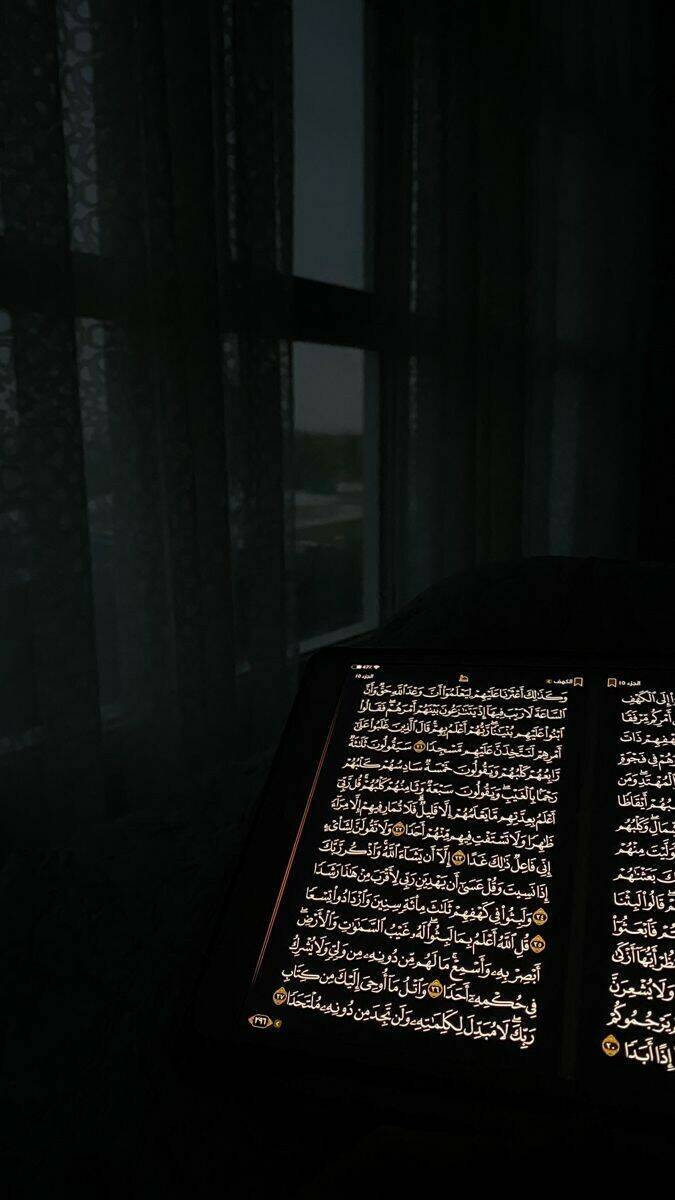 الجزء ١٥
إِلَى ٱلْكَهْفِ
أَمْرِكُم مِّرْفَقًا
ذَاتَ
فِى فَجْوَةٍ
ٱلْمُهْتَدِ وَمَن
أَيْقَاظًا
وَكَلْبُهُم
مِنْهُمْ
بَعَثْنَٰهُمْ
قَالُوا۟ لَبِثْنَا
فَٱبْعَثُوٓا۟
أَيُّهَآ أَزْكَىٰ
وَلَا يُشْعِرَنَّ
يَرْجُمُوكُمْ
إِذًا أَبَدًا ٢٠
47%
الكهف
الجزء ١٥
وَكَذَٰلِكَ أَعْثَرْنَا عَلَيْهِمْ لِيَعْلَمُوٓا۟ أَنَّ وَعْدَ ٱللَّهِ حَقٌّ وَأَنَّ
ٱلسَّاعَةَ لَا رَيْبَ فِيهَآ إِذْ يَتَنَٰزَعُونَ بَيْنَهُمْ أَمْرَهُمْ ۖ فَقَالُوا۟
ٱبْنُوا۟ عَلَيْهِم بُنْيَٰنًا ۖ رَّبُّهُمْ أَعْلَمُ بِهِمْ ۚ قَالَ ٱلَّذِينَ غَلَبُوا۟ عَلَىٰٓ
أَمْرِهِمْ لَنَتَّخِذَنَّ عَلَيْهِم مَّسْجِدًا ٢١ سَيَقُولُونَ ثَلَٰثَةٌ
رَّابِعُهُمْ كَلْبُهُمْ وَيَقُولُونَ خَمْسَةٌ سَادِسُهُمْ كَلْبُهُمْ
رَجْمًۢا بِٱلْغَيْبِ ۖ وَيَقُولُونَ سَبْعَةٌ وَثَامِنُهُمْ كَلْبُهُمْ ۚ قُل رَّبِّىٓ
أَعْلَمُ بِعِدَّتِهِم مَّا يَعْلَمُهُمْ إِلَّا قَلِيلٌ ۗ فَلَا تُمَارِ فِيهِمْ إِلَّا مِرَآءً
ظَٰهِرًا وَلَا تَسْتَفْتِ فِيهِم مِّنْهُمْ أَحَدًا ٢٢ وَلَا تَقُولَنَّ لِشَا۟ىْءٍ
إِنِّى فَاعِلٌ ذَٰلِكَ غَدًا ٢٣ إِلَّآ أَن يَشَآءَ ٱللَّهُ ۚ وَٱذْكُر رَّبَّكَ
إِذَا نَسِيتَ وَقُلْ عَسَىٰٓ أَن يَهْدِيَنِ رَبِّى لِأَقْرَبَ مِنْ هَٰذَا رَشَدًا
٢٤ وَلَبِثُوا۟ فِى كَهْفِهِمْ ثَلَٰثَ مِا۟ئَةٍ سِنِينَ وَٱزْدَادُوا۟ تِسْعًا
٢٥ قُلِ ٱللَّهُ أَعْلَمُ بِمَا لَبِثُوا۟ ۖ لَهُۥ غَيْبُ ٱلسَّمَٰوَٰتِ وَٱلْأَرْضِ ۖ
أَبْصِرْ بِهِۦ وَأَسْمِعْ ۚ مَا لَهُم مِّن دُونِهِۦ مِن وَلِىٍّ وَلَا يُشْرِكُ
فِى حُكْمِهِۦٓ أَحَدًا ٢٦ وَٱتْلُ مَآ أُوحِىَ إِلَيْكَ مِن كِتَابِ
رَبِّكَ ۖ لَا مُبَدِّلَ لِكَلِمَٰتِهِۦ وَلَن تَجِدَ مِن دُونِهِۦ مُلْتَحَدًا ٢٧
٢٩٦